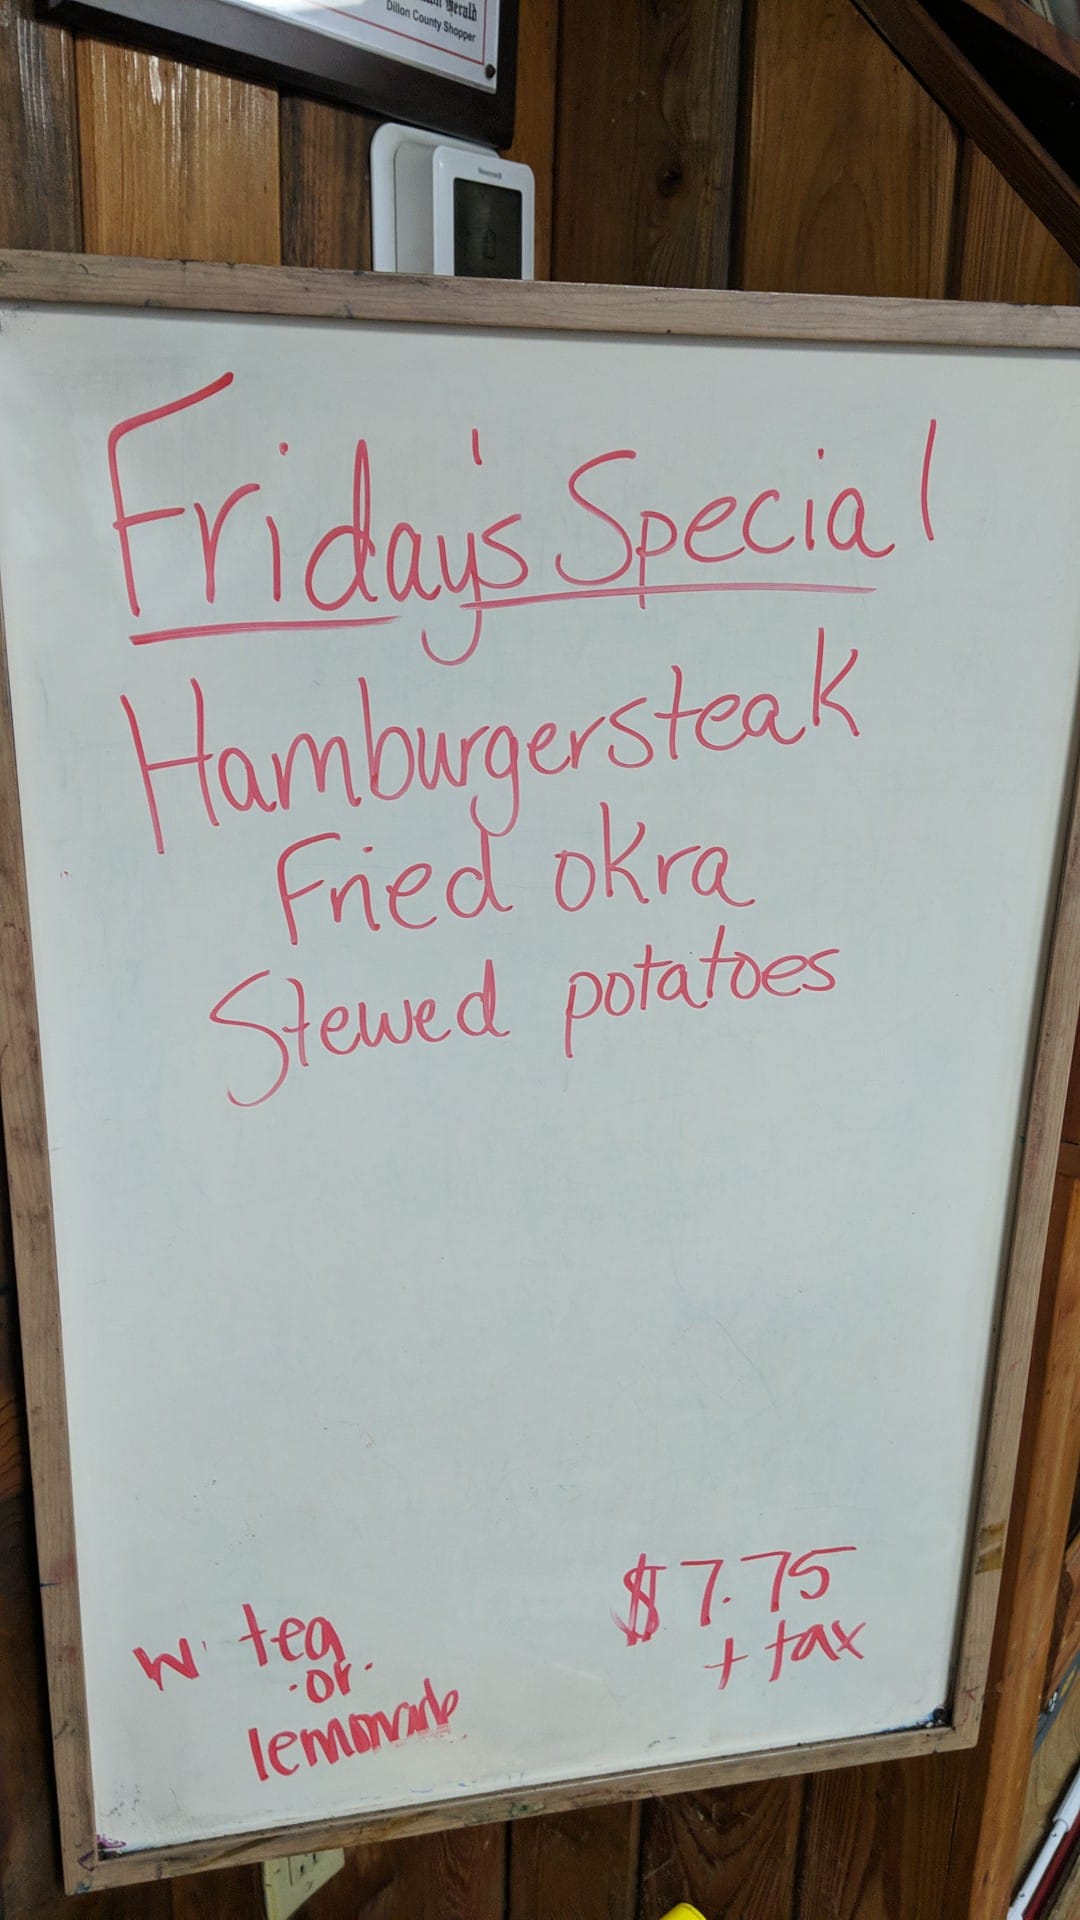 Herald
Dillon County Shopper
Honeywell
Friday's Special
Hamburgersteak
Fried okra
Stewed potatoes
$7.75
+ tax
w. tea
or
lemonade